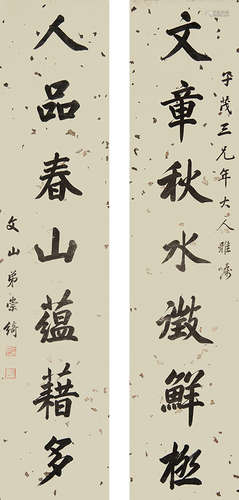 文章秋水澂鮮極
子茂三兄年大人雅囑
人品春山蘊藉多
文山弟崇綺